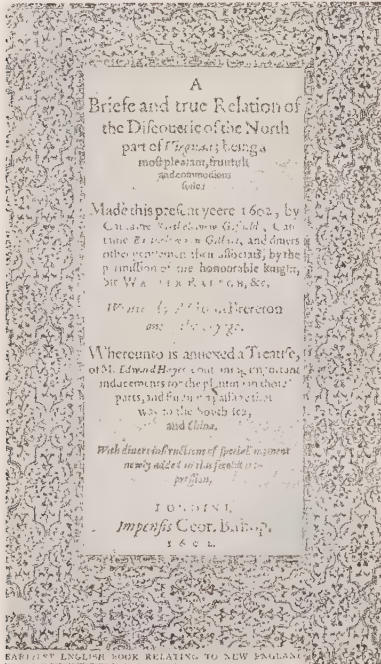 A
Briefe and true Relation of
the Discouerie of the North
part of Virginia; being a
most pleasant, fruitfull
and commodious
soile:
Made this present yeere 1602, by
Captaine Bartholomew Gosnold, Cap-
taine Bartholomew Gilbert, and diuers
other gentlemen their associats, by the
permission of the honourable knight,
Sir WALTER RALEGH, &c.
Brereton
one of the voyage.
Whereunto is annexed a Treatise,
of M. Edward Hayes, conteining important
inducements for the planting in those
parts, and finding a passage that
way to the South sea,
and China.
With diuers instructions of speciall moment
newly added in this second im-
pression.
LONDINI,
Impensis Geor. Bishop.
1602.
EARLIEST ENGLISH BOOK RELATING TO NEW ENGLAND